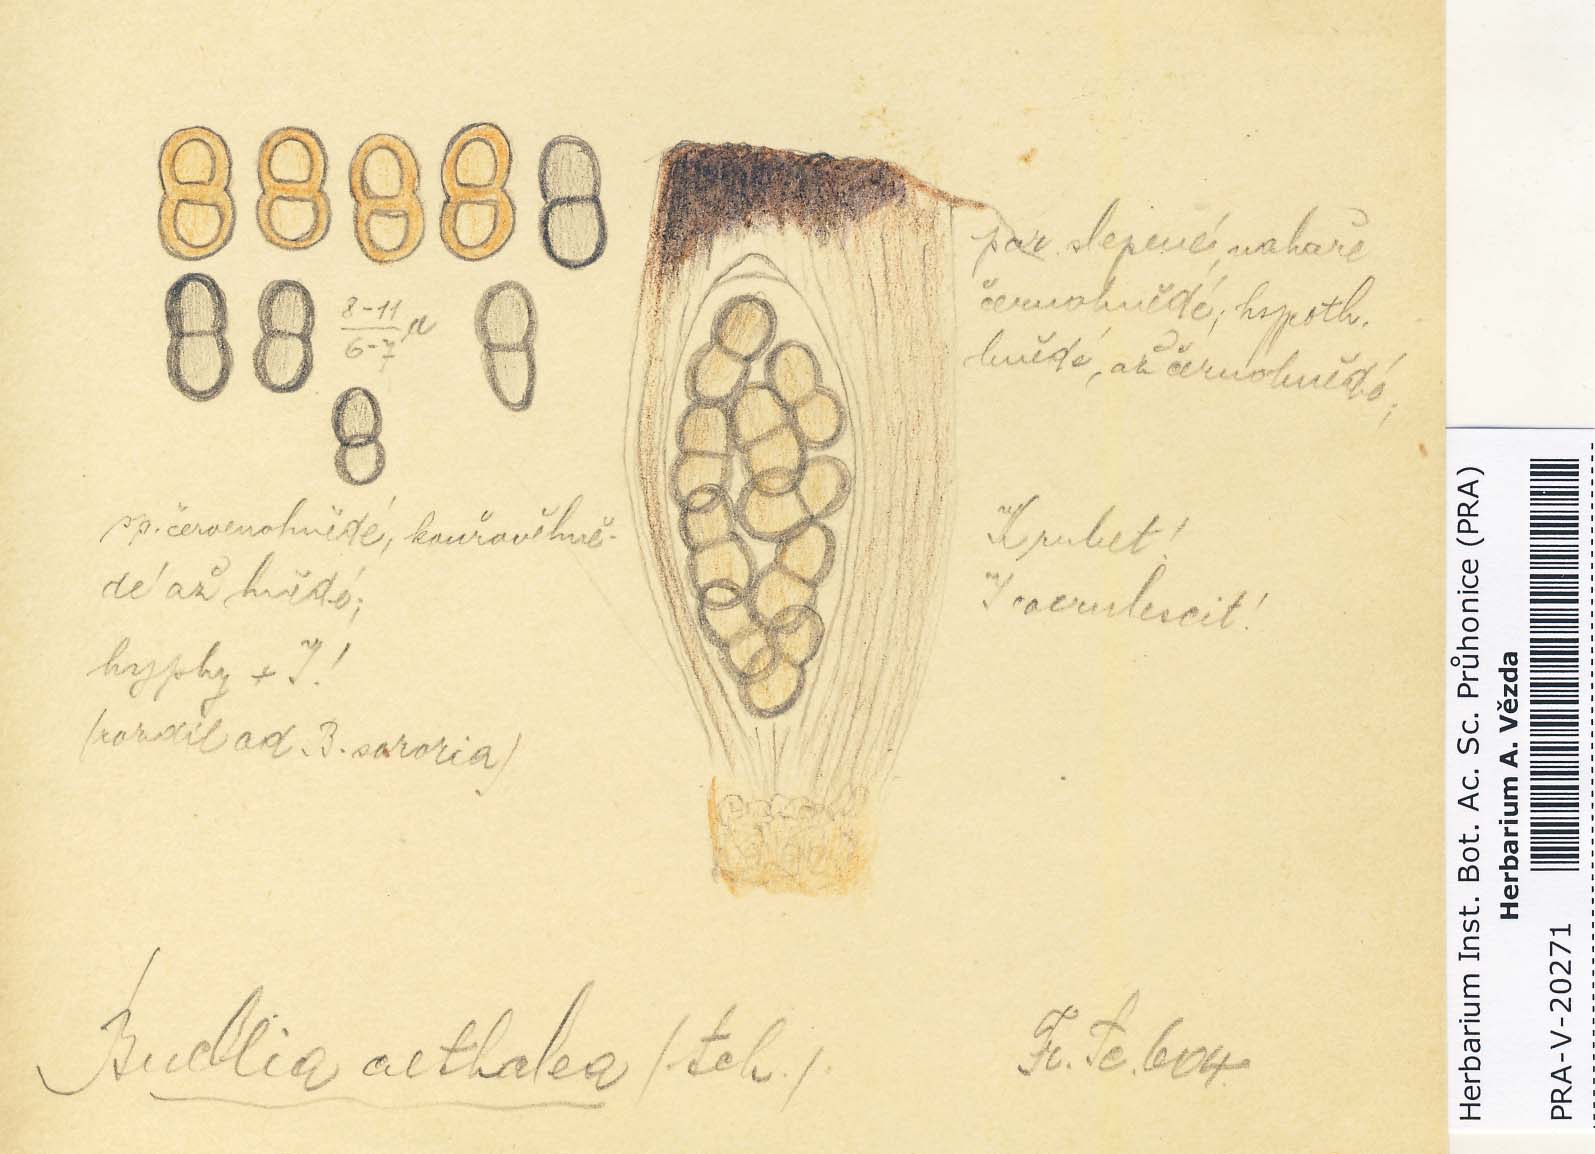 8-11
6-7 μ
par. slepené, nahoře
černohnědé; hypoth.
hnědé, až černohnědé;
sp. červenohnědé, kouřověhně-
dé až hnědé;
hyphy + J!
(rozdíl od B. sororia)
K rubet!
J coerulescit!
Buellia aethalea (Ach.)
Fr. Sc. 604.
Herbarium Inst. Bot. Ac. Sc. Průhonice (PRA)
Herbarium A. Vězda
PRA-V-20271